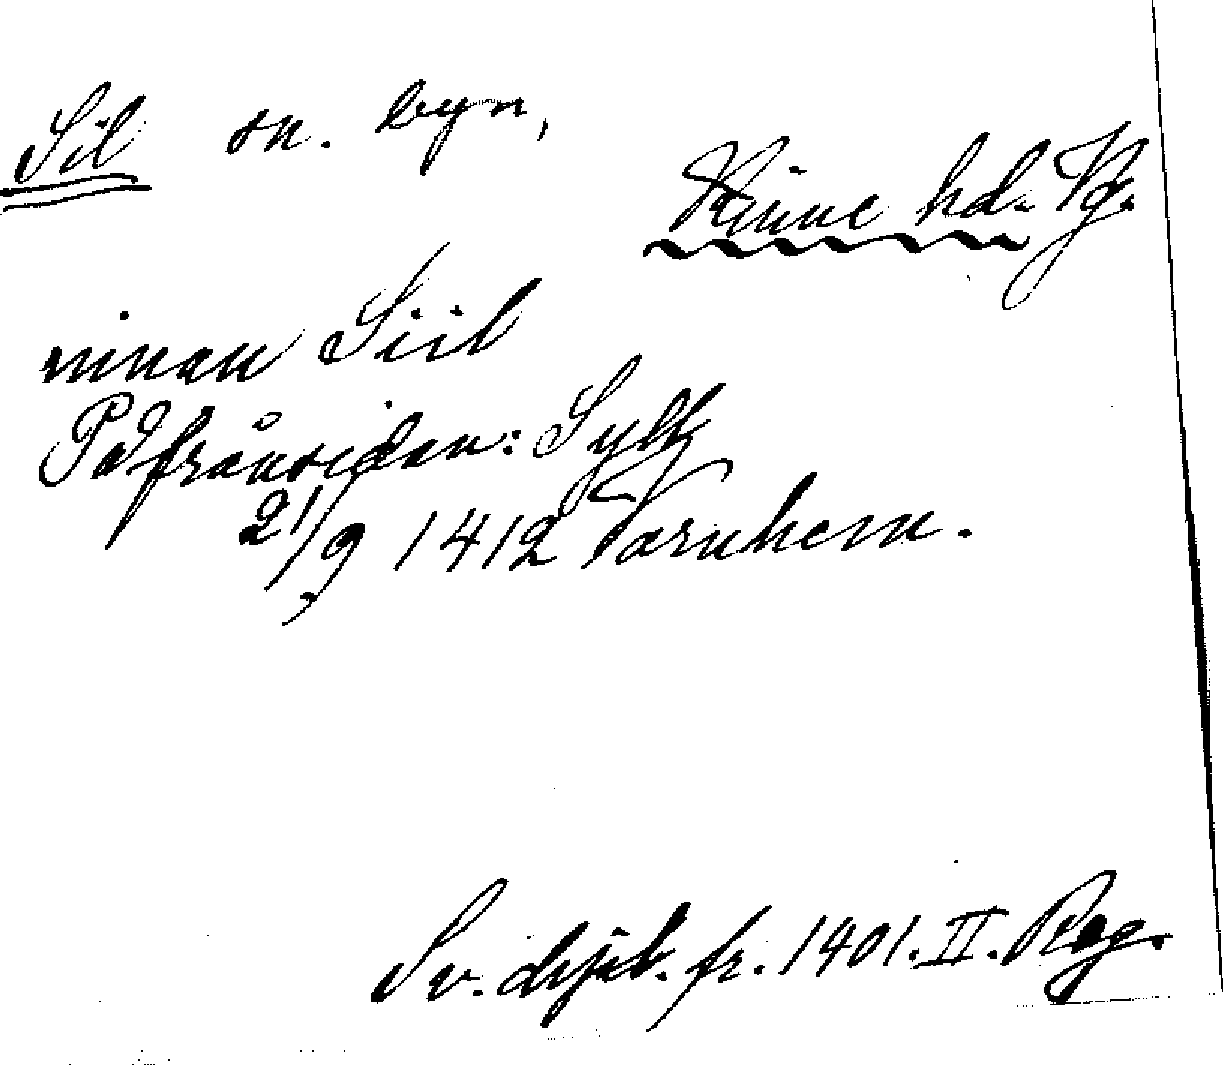 Sil sn. byn,
Kinne hd. Vg.
ninan Siil
På frånsidan: Sylk
21/9 1412 Varnhem.
Sv. dipl. fr. 1401. II. Reg.